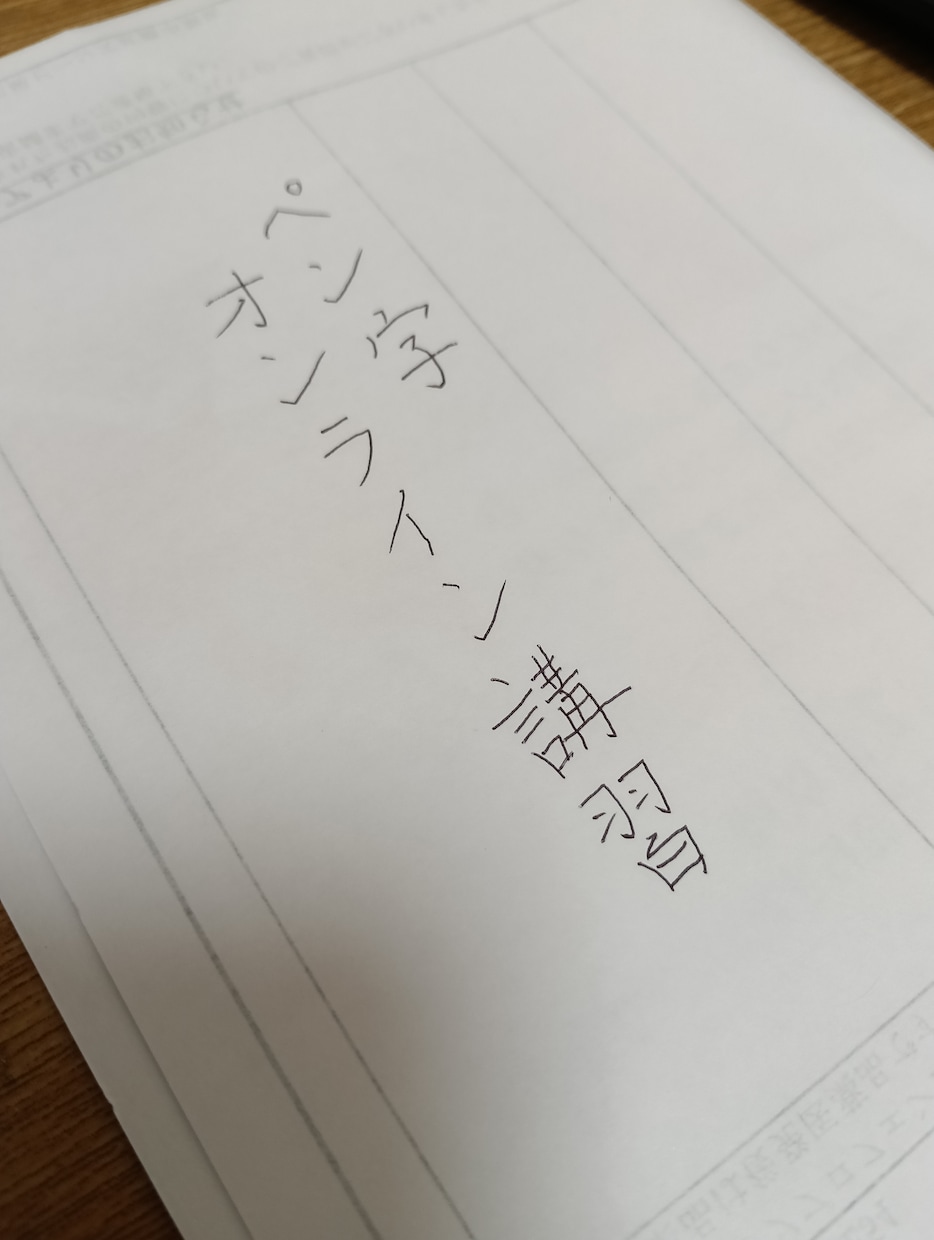 ペン字
オンライン講習